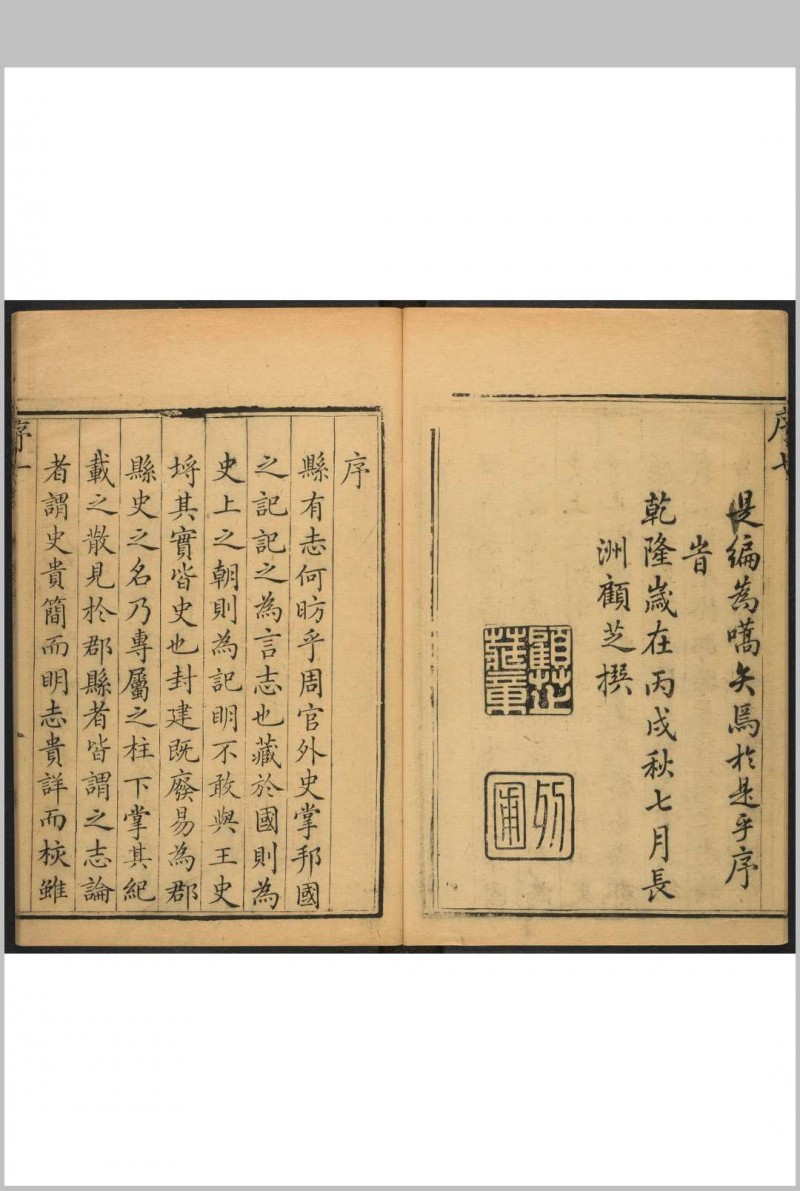 序七
是編為嚆矢焉於是乎序
旹
乾隆歲在丙戌秋七月長
洲顧芝撰
顧芝
藏章
序
縣有志何昉乎周官外史掌邦國
之記記之為言志也藏於國則為
史上之朝則為記明不敢與王史
埒其實皆史也封建既廢易為郡
縣史之名乃專屬之柱下掌其紀
載之散見於郡縣者皆謂之志論
者謂史貴簡而明志貴詳而核雖
序一